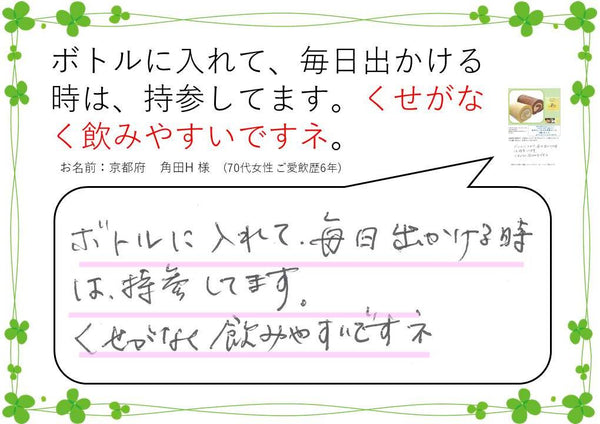 ボトルに入れて、毎日出かける
時は、持参してます。くせがな
く飲みやすいですネ。
お名前：京都府　角田H 様　(70代女性 ご愛飲歴6年)
ボトルに入れて、毎日出かける時
は、持参してます。
くせがなく飲みやすいですネ